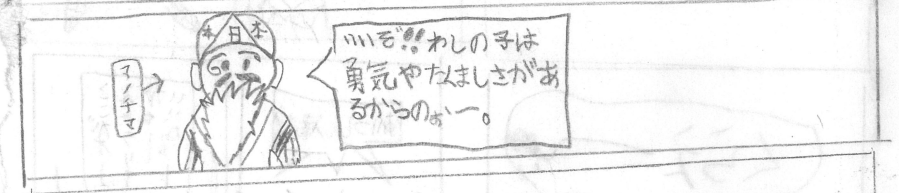 本日本
アノチマ
いいぞ!!わしの子は
勇気やたくましさがあ
るからのぉー。